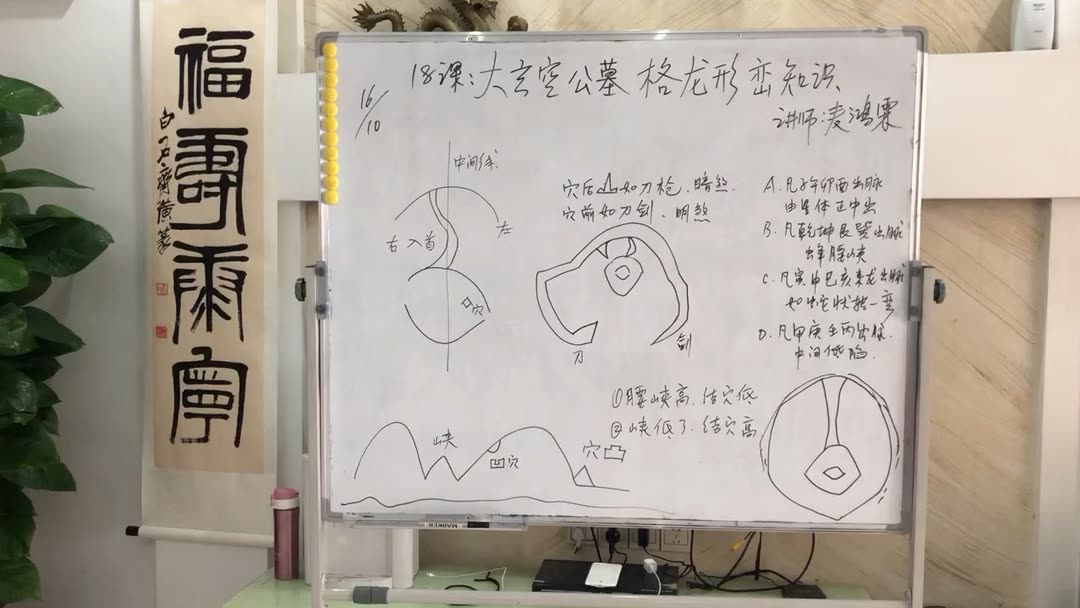 福
壽
康
寧
白石齊璜篆
18课:大玄空公墓 格龙形峦知识
讲师:凌鸿霖
16/10
中间线
右 入首
左
穴
穴后 如刀枪、暗煞.
穴前如刀剑、明煞
刀
剑
A. 凡子午卯酉出脉
由星体正中出
B. 凡乾坤艮巽出脉
出蜂腰峡
C. 凡寅申巳亥来龙出脉
如蛇状 一弯
D. 凡甲庚壬丙出脉
中间低陷.
①腰峡高、结穴低
②峡低了、结穴高
峡
凹穴
穴凸
MARKER